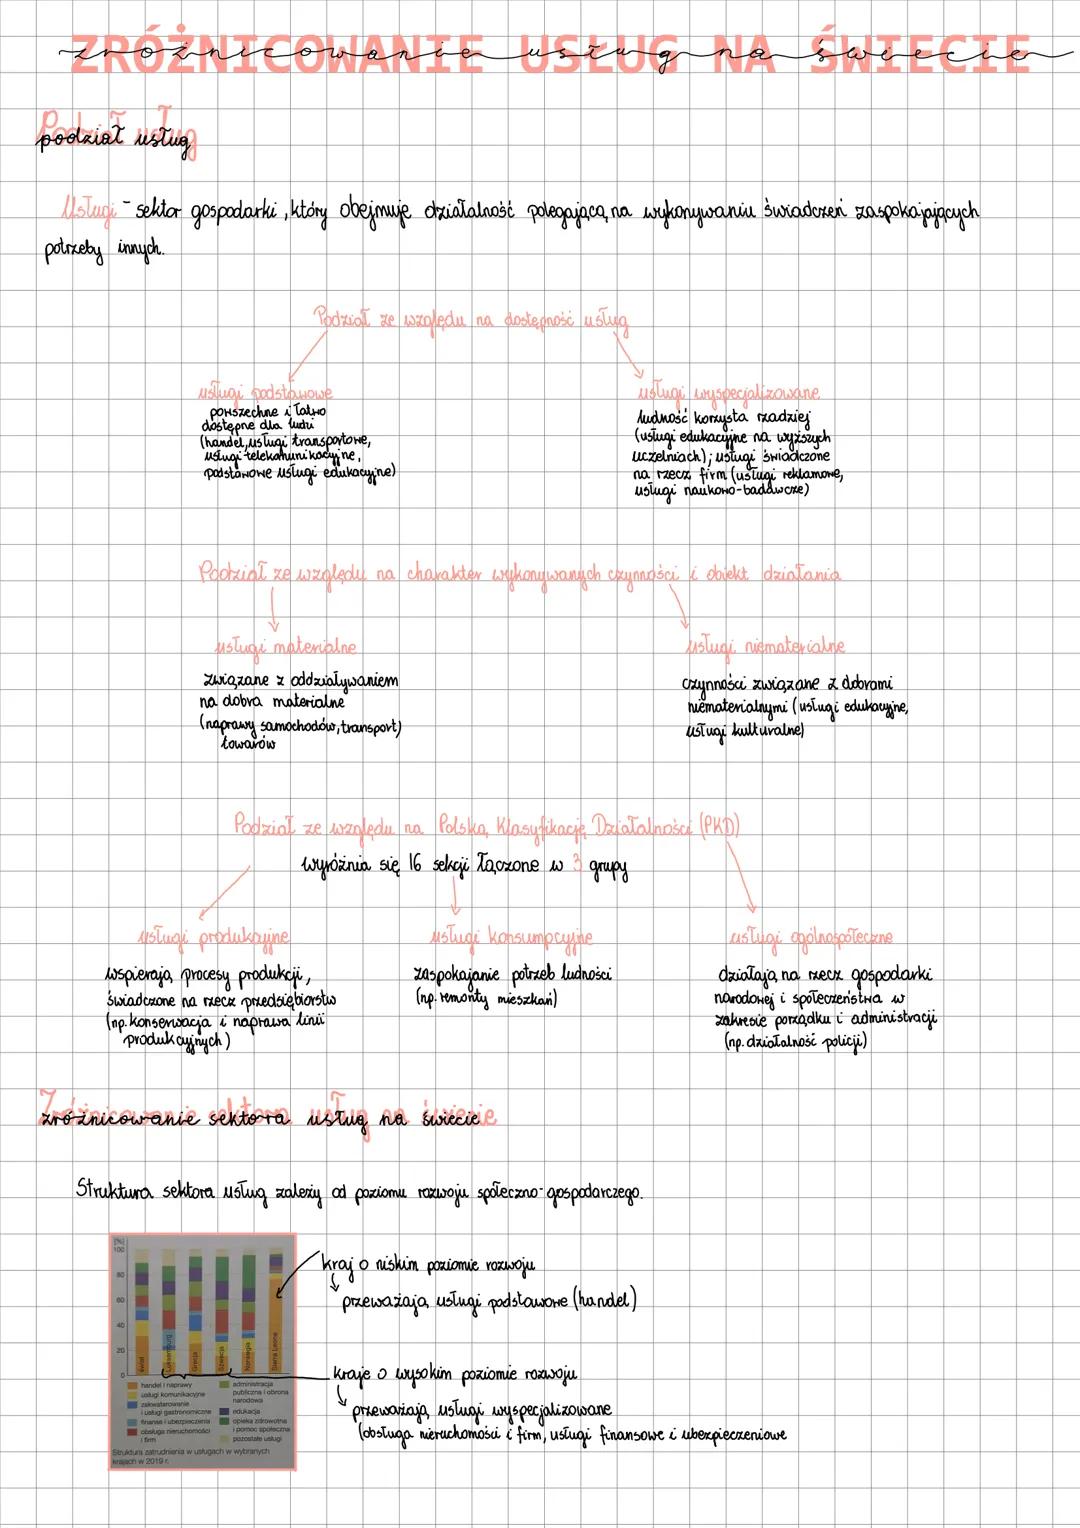 ZRÓŻNICOWANIE USŁUG NA ŚWIECIE
zróżnicowanie usług na świecie
Podział usług
podział usług
Usługi - sektor gospodarki, który obejmuje działalność polegającą na wykonywaniu świadczeń zaspokajających
potrzeby innych.
Podział ze względu na dostępność usług
usługi podstawowe
powszechne i łatwo
dostępne dla ludzi
(handel, usługi transportowe,
usługi telekomunikacyjne,
podstawowe usługi edukacyjne)
usługi wyspecjalizowane
ludność korzysta rzadziej
(usługi edukacyjne na wyższych
uczelniach); usługi świadczone
na rzecz firm (usługi reklamowe,
usługi naukowo-badawcze)
Podział ze względu na charakter wykonywanych czynności i obiekt działania
usługi materialne
związane z oddziaływaniem
na dobra materialne
(naprawy samochodów, transport)
towarów
usługi niematerialne
czynności związane z dobrami
niematerialnymi (usługi edukacyjne,
usługi kulturalne)
Podział ze względu na Polską Klasyfikację Działalności (PKD)
wyróżnia się 16 sekcji łączone w 3 grupy
usługi produkcyjne
wspierają procesy produkcji,
świadczone na rzecz przedsiębiorstw
(np. konserwacja i naprawa linii
produkcyjnych)
usługi konsumpcyjne
zaspokajanie potrzeb ludności
(np. remonty mieszkań)
usługi ogólnospołeczne
działają na rzecz gospodarki
narodowej i społeczeństwa w
zakresie porządku i administracji
(np. działalność policji)
Zróżnicowanie sektora usług na świecie
zróżnicowanie sektora usług na świecie
Struktura sektora usług zależy od poziomu rozwoju społeczno-gospodarczego.
[%]
100
80
60
40
20
0
świat
Luksemburg
Grecja
Szwecja
Norwegia
Sierra Leone
handel i naprawy
usługi komunikacyjne
zakwaterowanie
i usługi gastronomiczne
finanse i ubezpieczenia
obsługa nieruchomości
i firm
administracja
publiczna i obrona
narodowa
edukacja
opieka zdrowotna
i pomoc społeczna
pozostałe usługi
Struktura zatrudnienia w usługach w wybranych
krajach w 2019 r.
kraj o niskim poziomie rozwoju
przeważają usługi podstawowe (handel)
kraje o wysokim poziomie rozwoju
przeważają usługi wyspecjalizowane
(obsługa nieruchomości i firm, usługi finansowe i ubezpieczeniowe